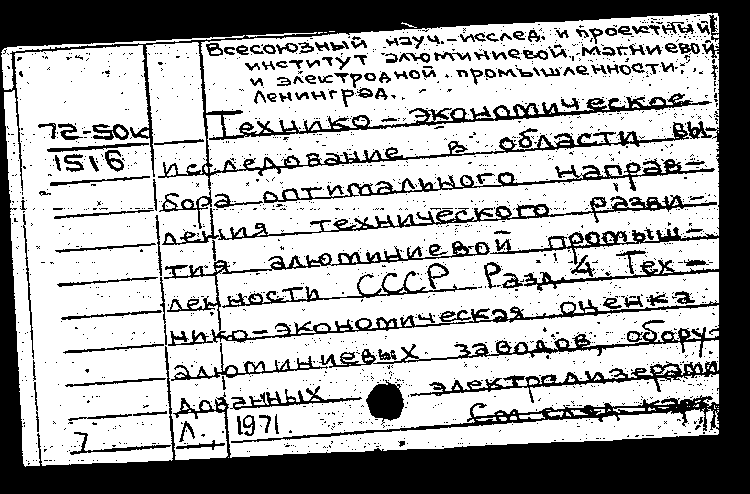 Всесоюзный науч.-исслед. и проектный
институт алюминиевой, магниевой
и электродной промышленности.
Ленинград.
72-50к
1516
Технико-экономическое
исследование в области вы-
бора оптимального направ-
ления технического разви-
тия алюминиевой промыш-
ленности СССР. Разд. 4. Тех-
нико-экономическая оценка
алюминиевых заводов, обору-
дованных электролизерами
7
Л., 1971.
См. след. карт.